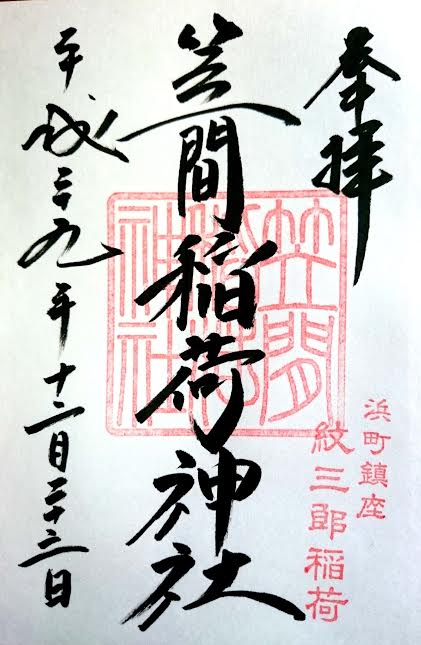 奉拝
浜町鎮座
紋三郎稲荷
笠間稲荷神社
笠間
稲荷
神社
平成二十九年十二月二十三日